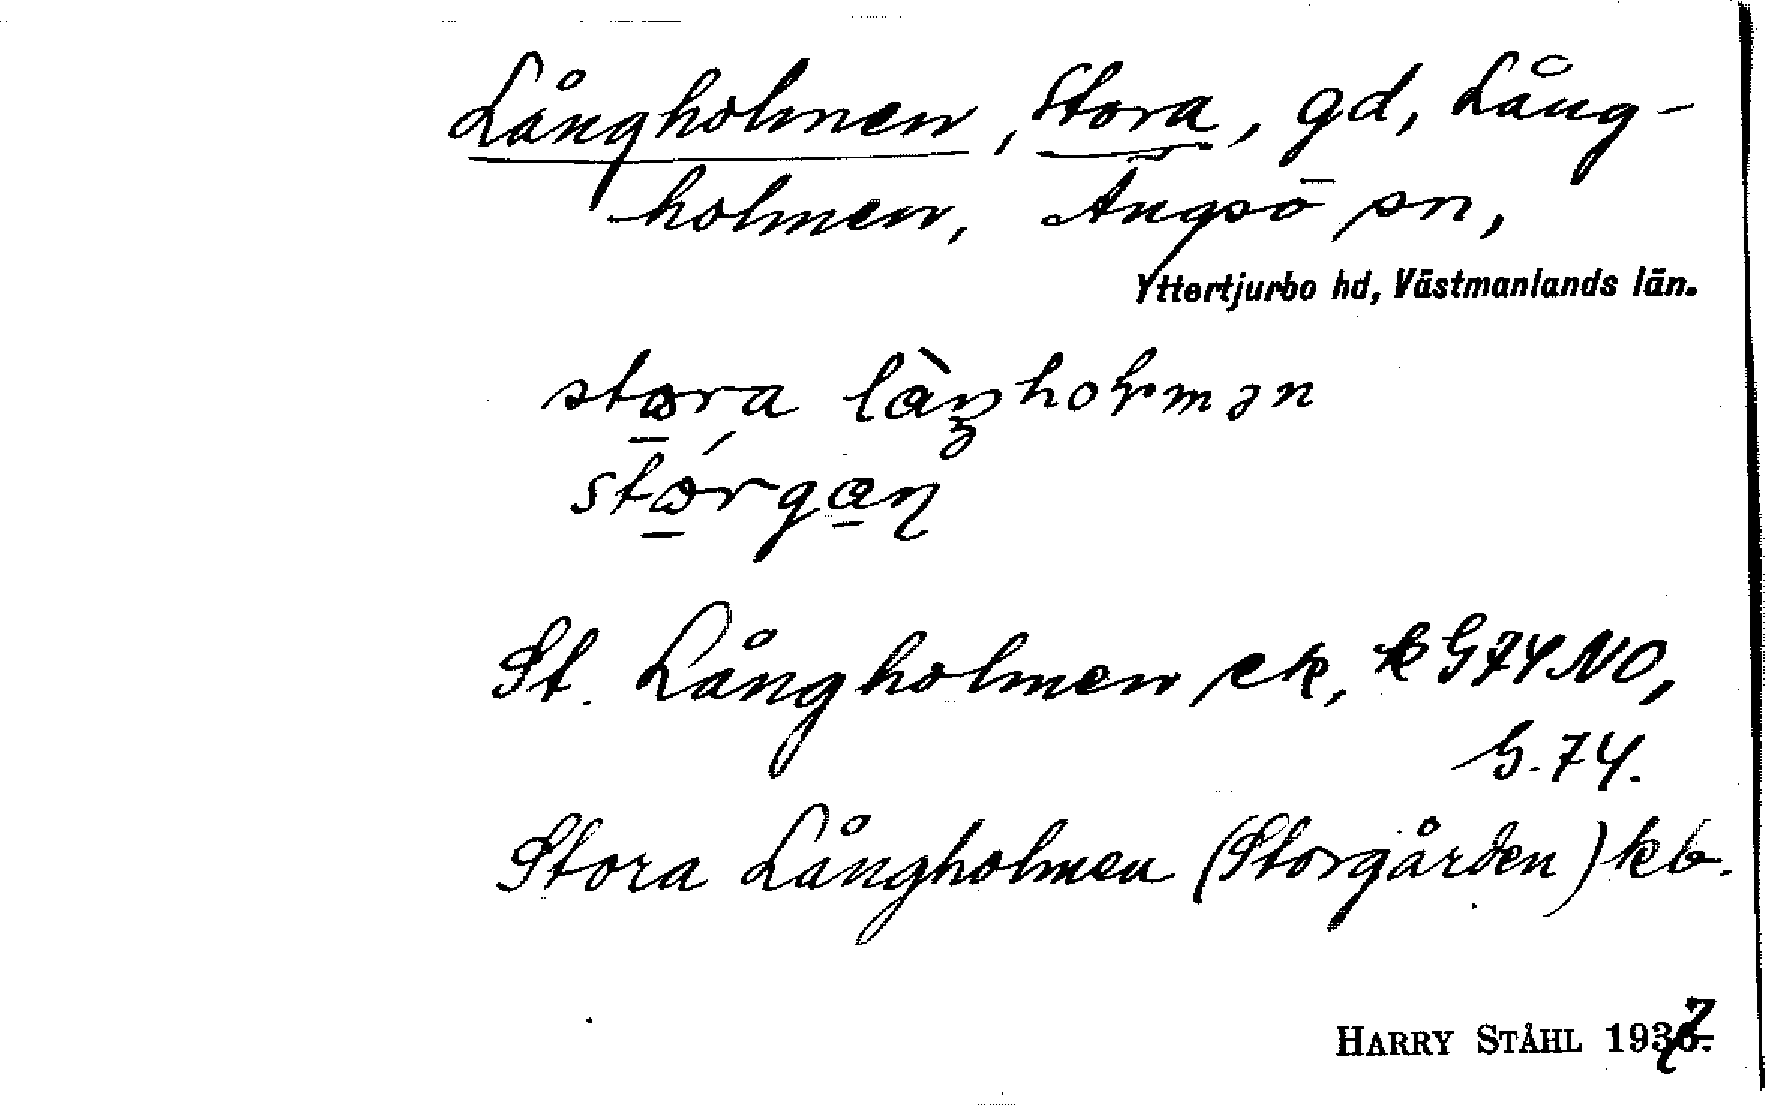 Långholmen, Stora, gd, Lång-
holmen, Ängsö sn,
Yttertjurbo hd, Västmanlands län.
stora låŋholmən
St. Långholmen ek, k G74 NO,
G. 74.
Stora Långholmen (Storgården) kb.
HARRY STÅHL 1937.